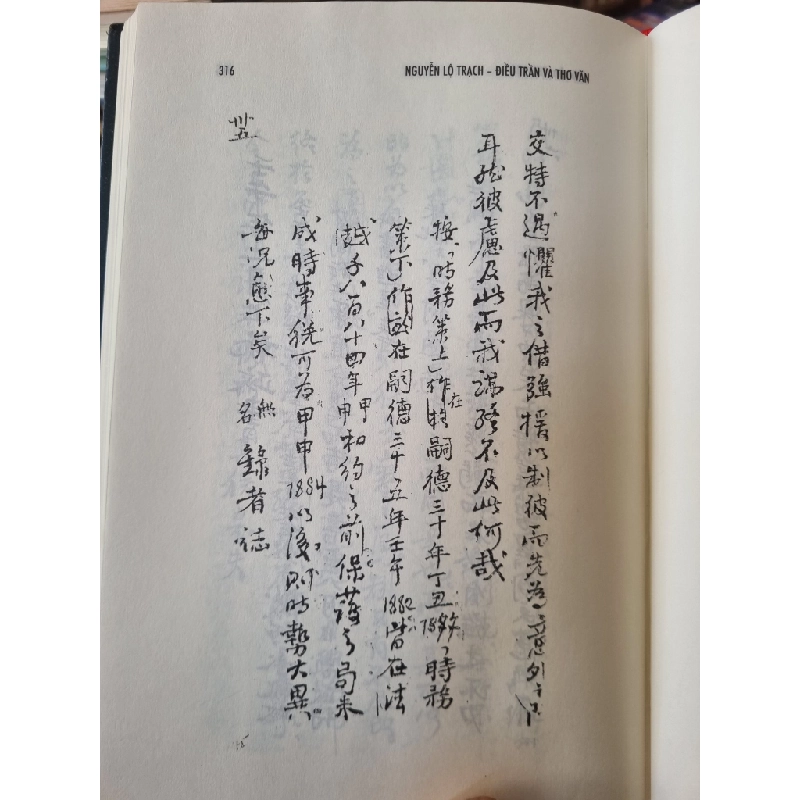 316
NGUYỄN LỘ TRẠCH – ĐIỀU TRẦN VÀ THƠ VĂN
卅五
交特不過懼我之借強援以制彼而先為意外之
耳能彼慮及此而我謀終不及此何哉
按「時務策上」作在嗣德三十年丁丑「時務
策下」作在嗣德三十五年壬午1882皆在法
越千八百八十四年甲申和約之前保護之局未
成時事侭可為甲申1884以後則時勢大異
每況愈下矣
無名 錄者誌